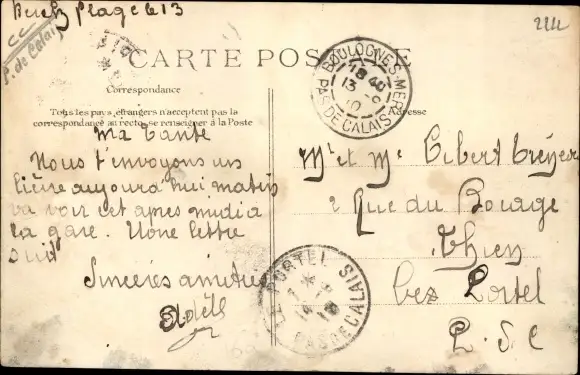 Plage le 13
CC
P. de Calais
222
CARTE POSTALE
Correspondance
Tous les pays étrangers n'acceptent pas la
correspondance au recto, se renseigner à la Poste
Adresse
BOULOGNE-S-MER
18 40
13 -9
10
PAS DE CALAIS
Ma Tante
Nous t'envoyons un
lièvre aujourd'hui matin
va voir cet apres midi à
la gare. Une lettre
suit
Sinceres amities
Adèle
Mr et Me
2 Rue du Bocage
Bez Portel
P. d C
LE PORTEL
PAS DE CALAIS